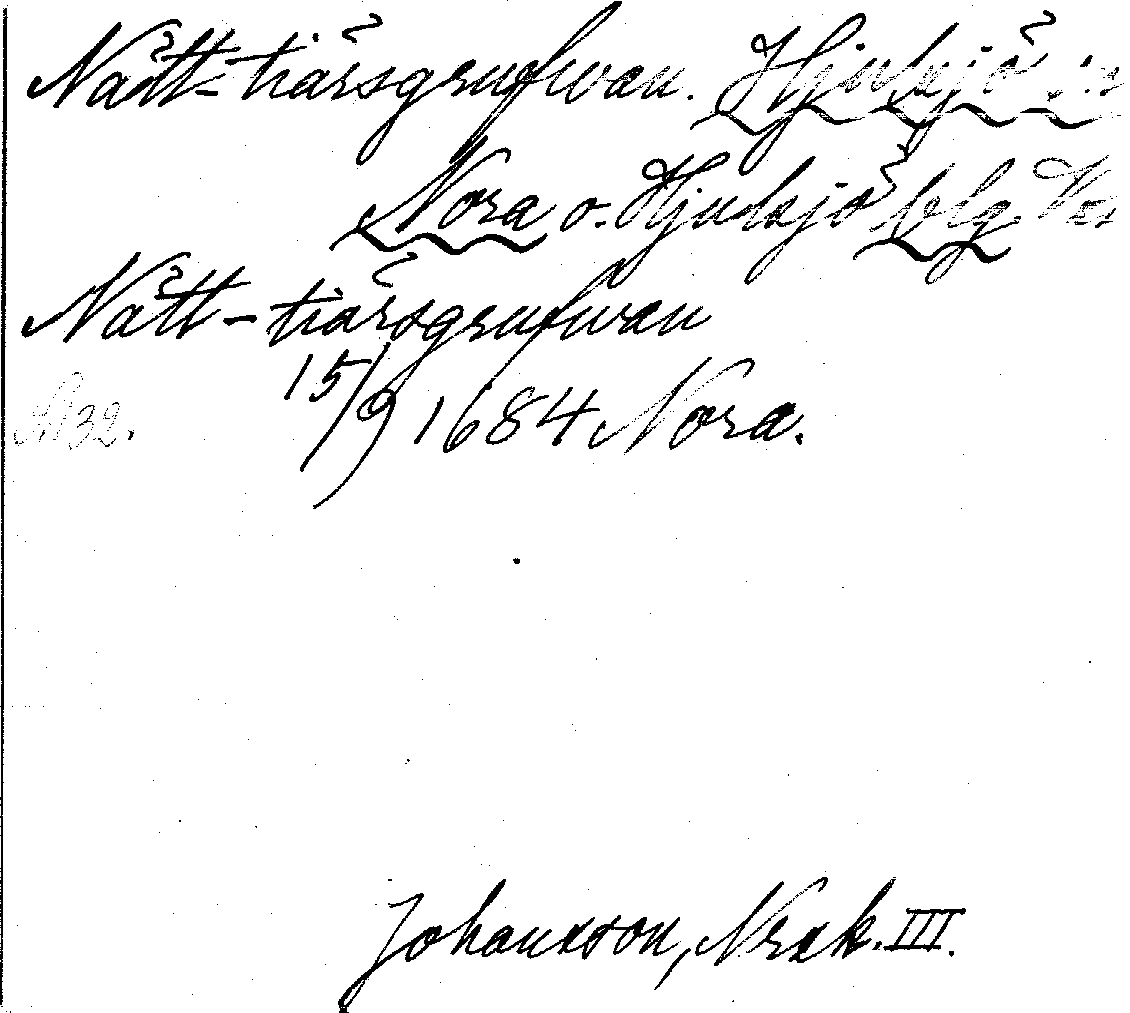 Nått-tiärsgrufwan. Hjulsjö sn
Nora o. Hjulsjö blg. Vsm
Nått-tiärsgrufwan
15/9 1684 Nora.
32.
Johansson, Nrsk. III.